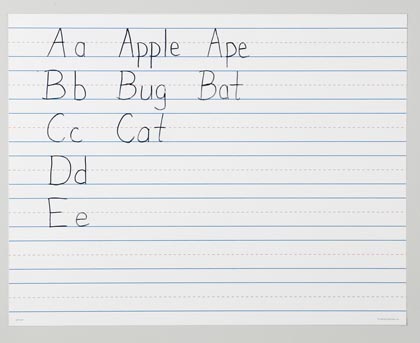 A a Apple Ape
B b Bug Bat
C c Cat
D d
E e